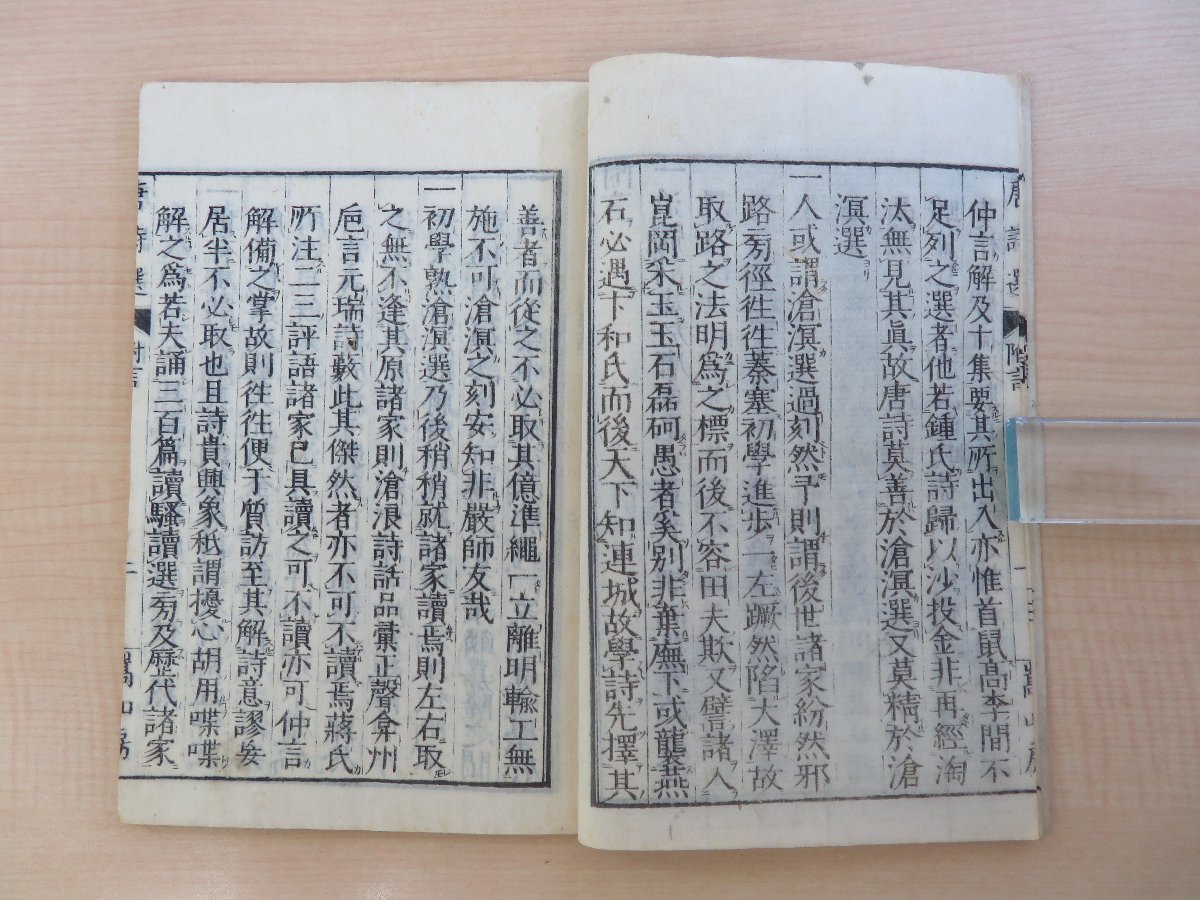 仲言解及十集要其所出入亦惟首鼠髙李間不
足列之選者他若鍾氏詩歸以沙投金非再經淘
汰無見其眞故唐詩莫善於滄溟選又莫精於滄
溟選
一人或謂滄溟選過刻然予則謂後世諸家紛然邪
路旁徑徃徃蓁塞初學進步一左蹶然陷大澤故
取路之法明爲之標而後不容田夫欺又譬諸人
崑岡采玉玉石磊砢愚者奚别非棄廡下或襲燕
石必遇卞和氏而後天下知連城故學詩先擇其
善者而從之不必取其億準繩一立離明輸工無
施不可滄溟之刻安知非嚴師友哉
一初學熟滄溟選乃後稍稍就諸家讀焉則左右取
之無不逢其原諸家則滄浪詩話品彙正聲弇州
巵言元瑞詩藪此其傑然者亦不可不讀焉蔣氏
所注二三評語諸家已具讀之可不讀亦可仲言
解備之掌故則徃徃便于質訪至其解詩意謬妄
居半不必取也且詩貴興象秖謂擾心胡用喋喋
解之爲若夫誦三百篇讀騷讀選旁及歴代諸家
唐詩選 附言 二